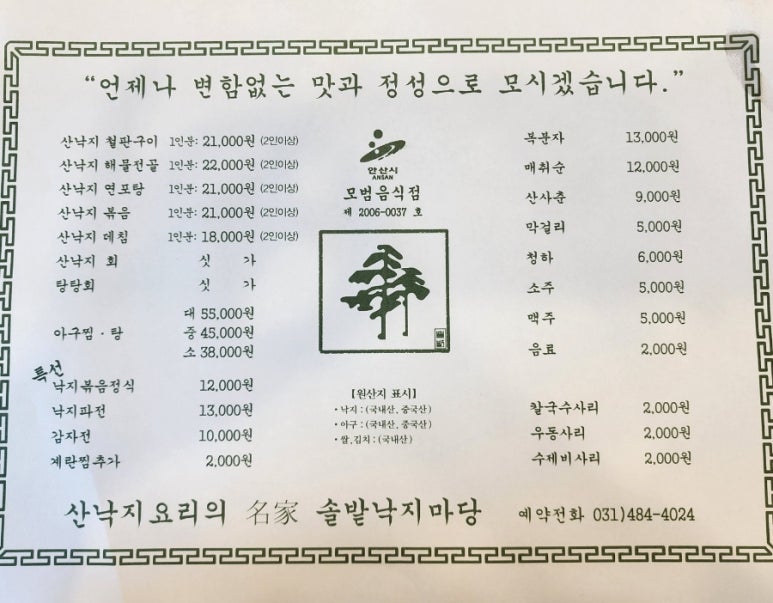 “언제나 변함없는 맛과 정성으로 모시겠습니다.”
산낙지 철판구이 1인분: 21,000원 (2인이상)
산낙지 해물전골 1인분: 22,000원 (2인이상)
산낙지 연포탕 1인분: 21,000원 (2인이상)
산낙지 볶음 1인분: 21,000원 (2인이상)
산낙지 데침 1인분: 18,000원 (2인이상)
산낙지 회 싯 가
탕탕회 싯 가
대 55,000원
아구찜 · 탕 중 45,000원
소 38,000원
특선
낙지볶음정식 12,000원
낙지파전 13,000원
감자전 10,000원
계란찜추가 2,000원
안산시
ANSAN
모범음식점
제 2006-0037 호
【원산지 표시】
• 낙지 : (국내산, 중국산)
• 아구 : (국내산, 중국산)
• 쌀, 김치 : (국내산)
복분자 13,000원
매취순 12,000원
산사춘 9,000원
막걸리 5,000원
청하 6,000원
소주 5,000원
맥주 5,000원
음료 2,000원
칼국수사리 2,000원
우동사리 2,000원
수제비사리 2,000원
산낙지요리의 名家 솔밭낙지마당 예약전화 031)484-4024